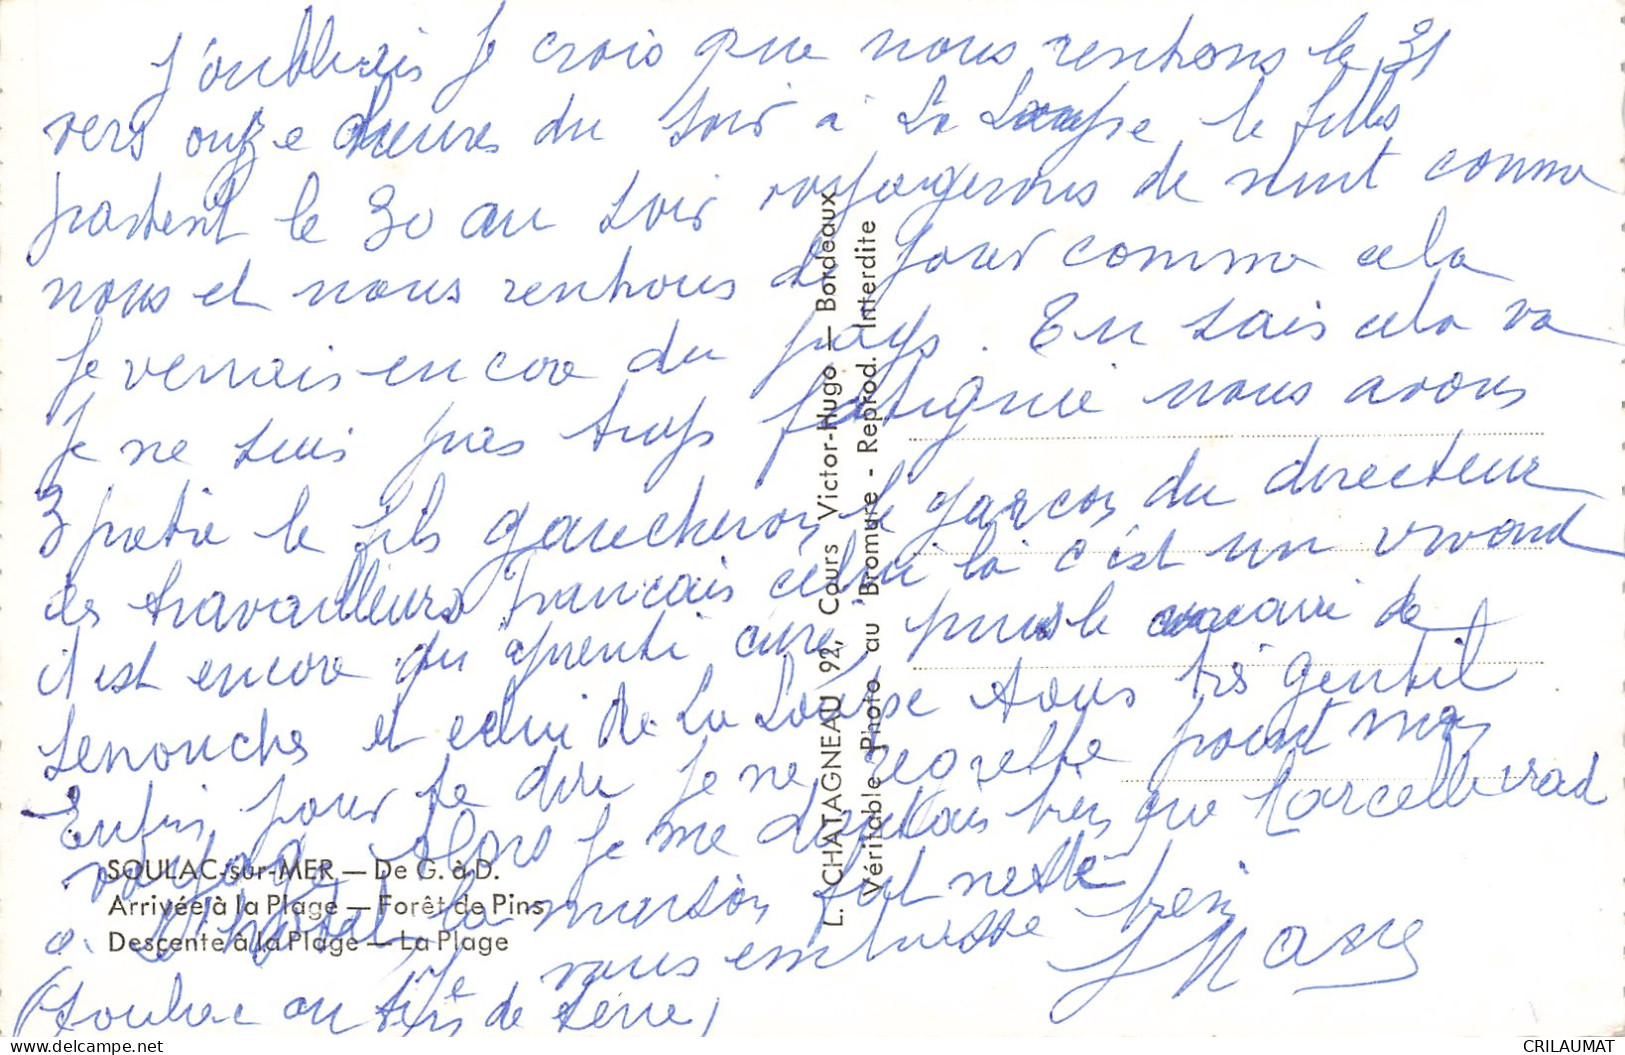 J'oublierais je crois que nous rentrons le 31
vers onze heures du soir à La Loupe le filles
partent le 30 au soir voyagerons de nuit comme
nous et nous rentrons de jour comme cela
je verrais encore du pays. Tu sais cela va
je ne suis pas trop fatiguée nous avons
3 prêtre le fils gaucheron le garçon du directeur
des travailleurs Français celui là c'est un vivand
il est encore qu apprenti curé, puis le vicaire de
Senonches et celui de La Loupe tous très gentil
Enfin pour te dire je ne regrette point mon
voyage alors je me doutais bien que Marcelle irad
à l'hotel la maison fut nette
Je vous embrasse bien
(Soulac au
de terre)
SOULAC-sur-MER — De G. à D.
Arrivée à la Plage — Forêt de Pins
Descente à la Plage — La Plage
L. CHATAGNEAU 92, Cours Victor-Hugo — Bordeaux
Véritable Photo au Bromure - Reprod. Interdite
delcampe.net
CRILAUMAT